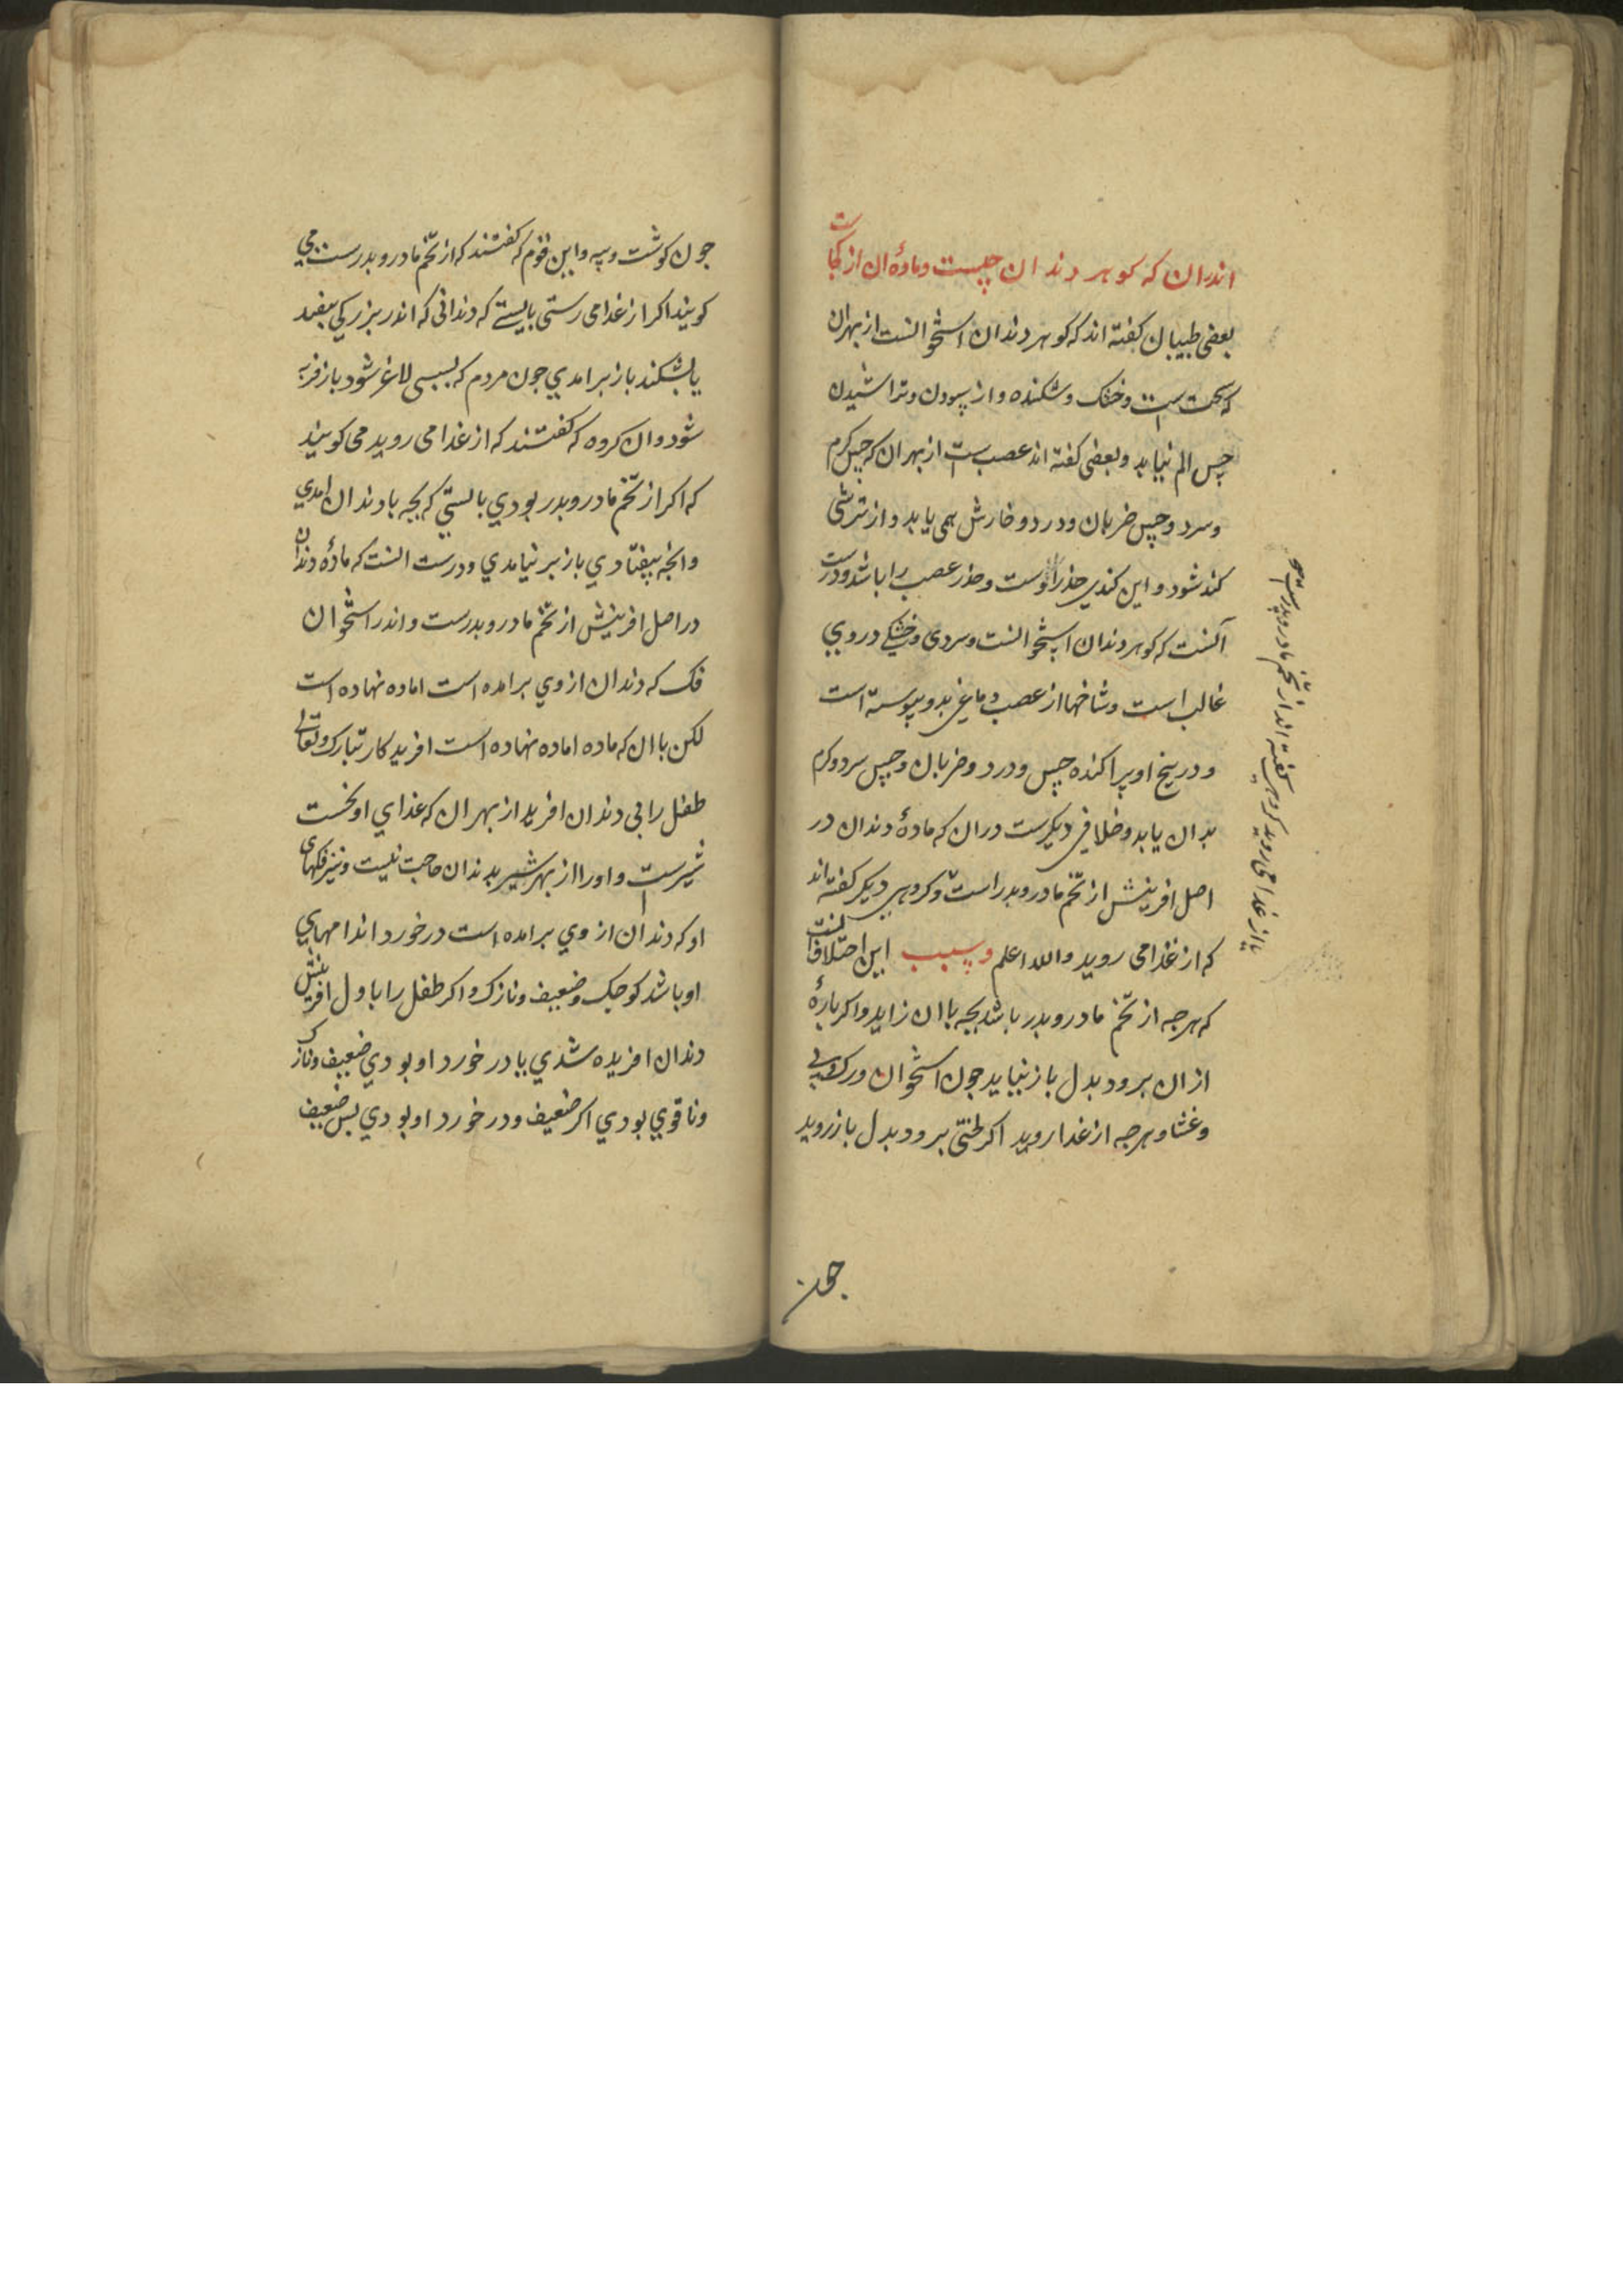 اندران که کوهر دندان چیست وماده آن از کجاست
بعضی طبیبان کفته اند که کوهر دندان استخوانست از بهر آن
که سخت است وخشک وشکننده واز سودن وتراشیدن
حس الم نیابد وبعضی کفته اند عصب ست از بهر آن که حس کرم
وسرد وحس ضربان ودرد وخارش همی یابد واز ترشی
کند شود واین کندی خدر اوست وخدر عصب را باشد ودرست
آنست که کوهر دندان استخوانست وسردی وخشکی در وی
غالب است وشاخها از عصب دماغی بدو پیوسته است
ودر بیخ او پراکنده حس ودرد وضربان وحس سرد وکرم
بدان یابد وخلافی دیکرست دران که مادهٔ دندان در
اصل افرینش از تخم مادر وبدر است وکروهی دیکر کفته اند
که از غذا می روید والله اعلم وسبب این اختلاف آنست
که هرجه از تخم مادر وبدر باشد بجه با ان زاید واکر بارهٔ
ازان برود بدل باز نیاید جون استخوان ورک وپی
وغشا وهرجه از غذا روید اکر لختی برود بدل باز روید
جون
کروهی کفته اند از تخم مادر وپدرست
یا از غذا می روید
جون کوشت وپیه واین قوم که کفتند که از تخم مادر وبدرست می
کویند اکر از غذا می رستی بایستی که دندانی که اندر بزرکی بیفتد
یا بشکند باز برامدی جون مردم که بسبی لاغر شود باز فربه
شود وان کروه که کفتند که از غذا می روید می کویند
که اکر از تخم مادر وبدر بودی بایستی که بجه با دندان امدی
وانجه بیفتادی باز بر نیامدی ودرست انست که مادهٔ دندان
در اصل افرینش از تخم مادر وبدرست واندر استخوان
فک که دندان از وی برامده است اماده نهاده است
لکن با ان که ماده اماده نهاده است افریدکار تبارک وتعالی
طفل را بی دندان افرید از بهر ان که غذای او نخست
شیرست واورا از بهر شیر بدندان حاجت نیست ونیز فکهای
او که دندان از وی برامده است درخورد اندامهای
او باشد کوجک وضعیف ونازک واکر طفل را باول افرینش
دندان افریده شدی یا درخورد او بودی ضعیف ونازک
ونا قوی بودی اکر ضعیف ودرخورد او بودی بس ضعیف